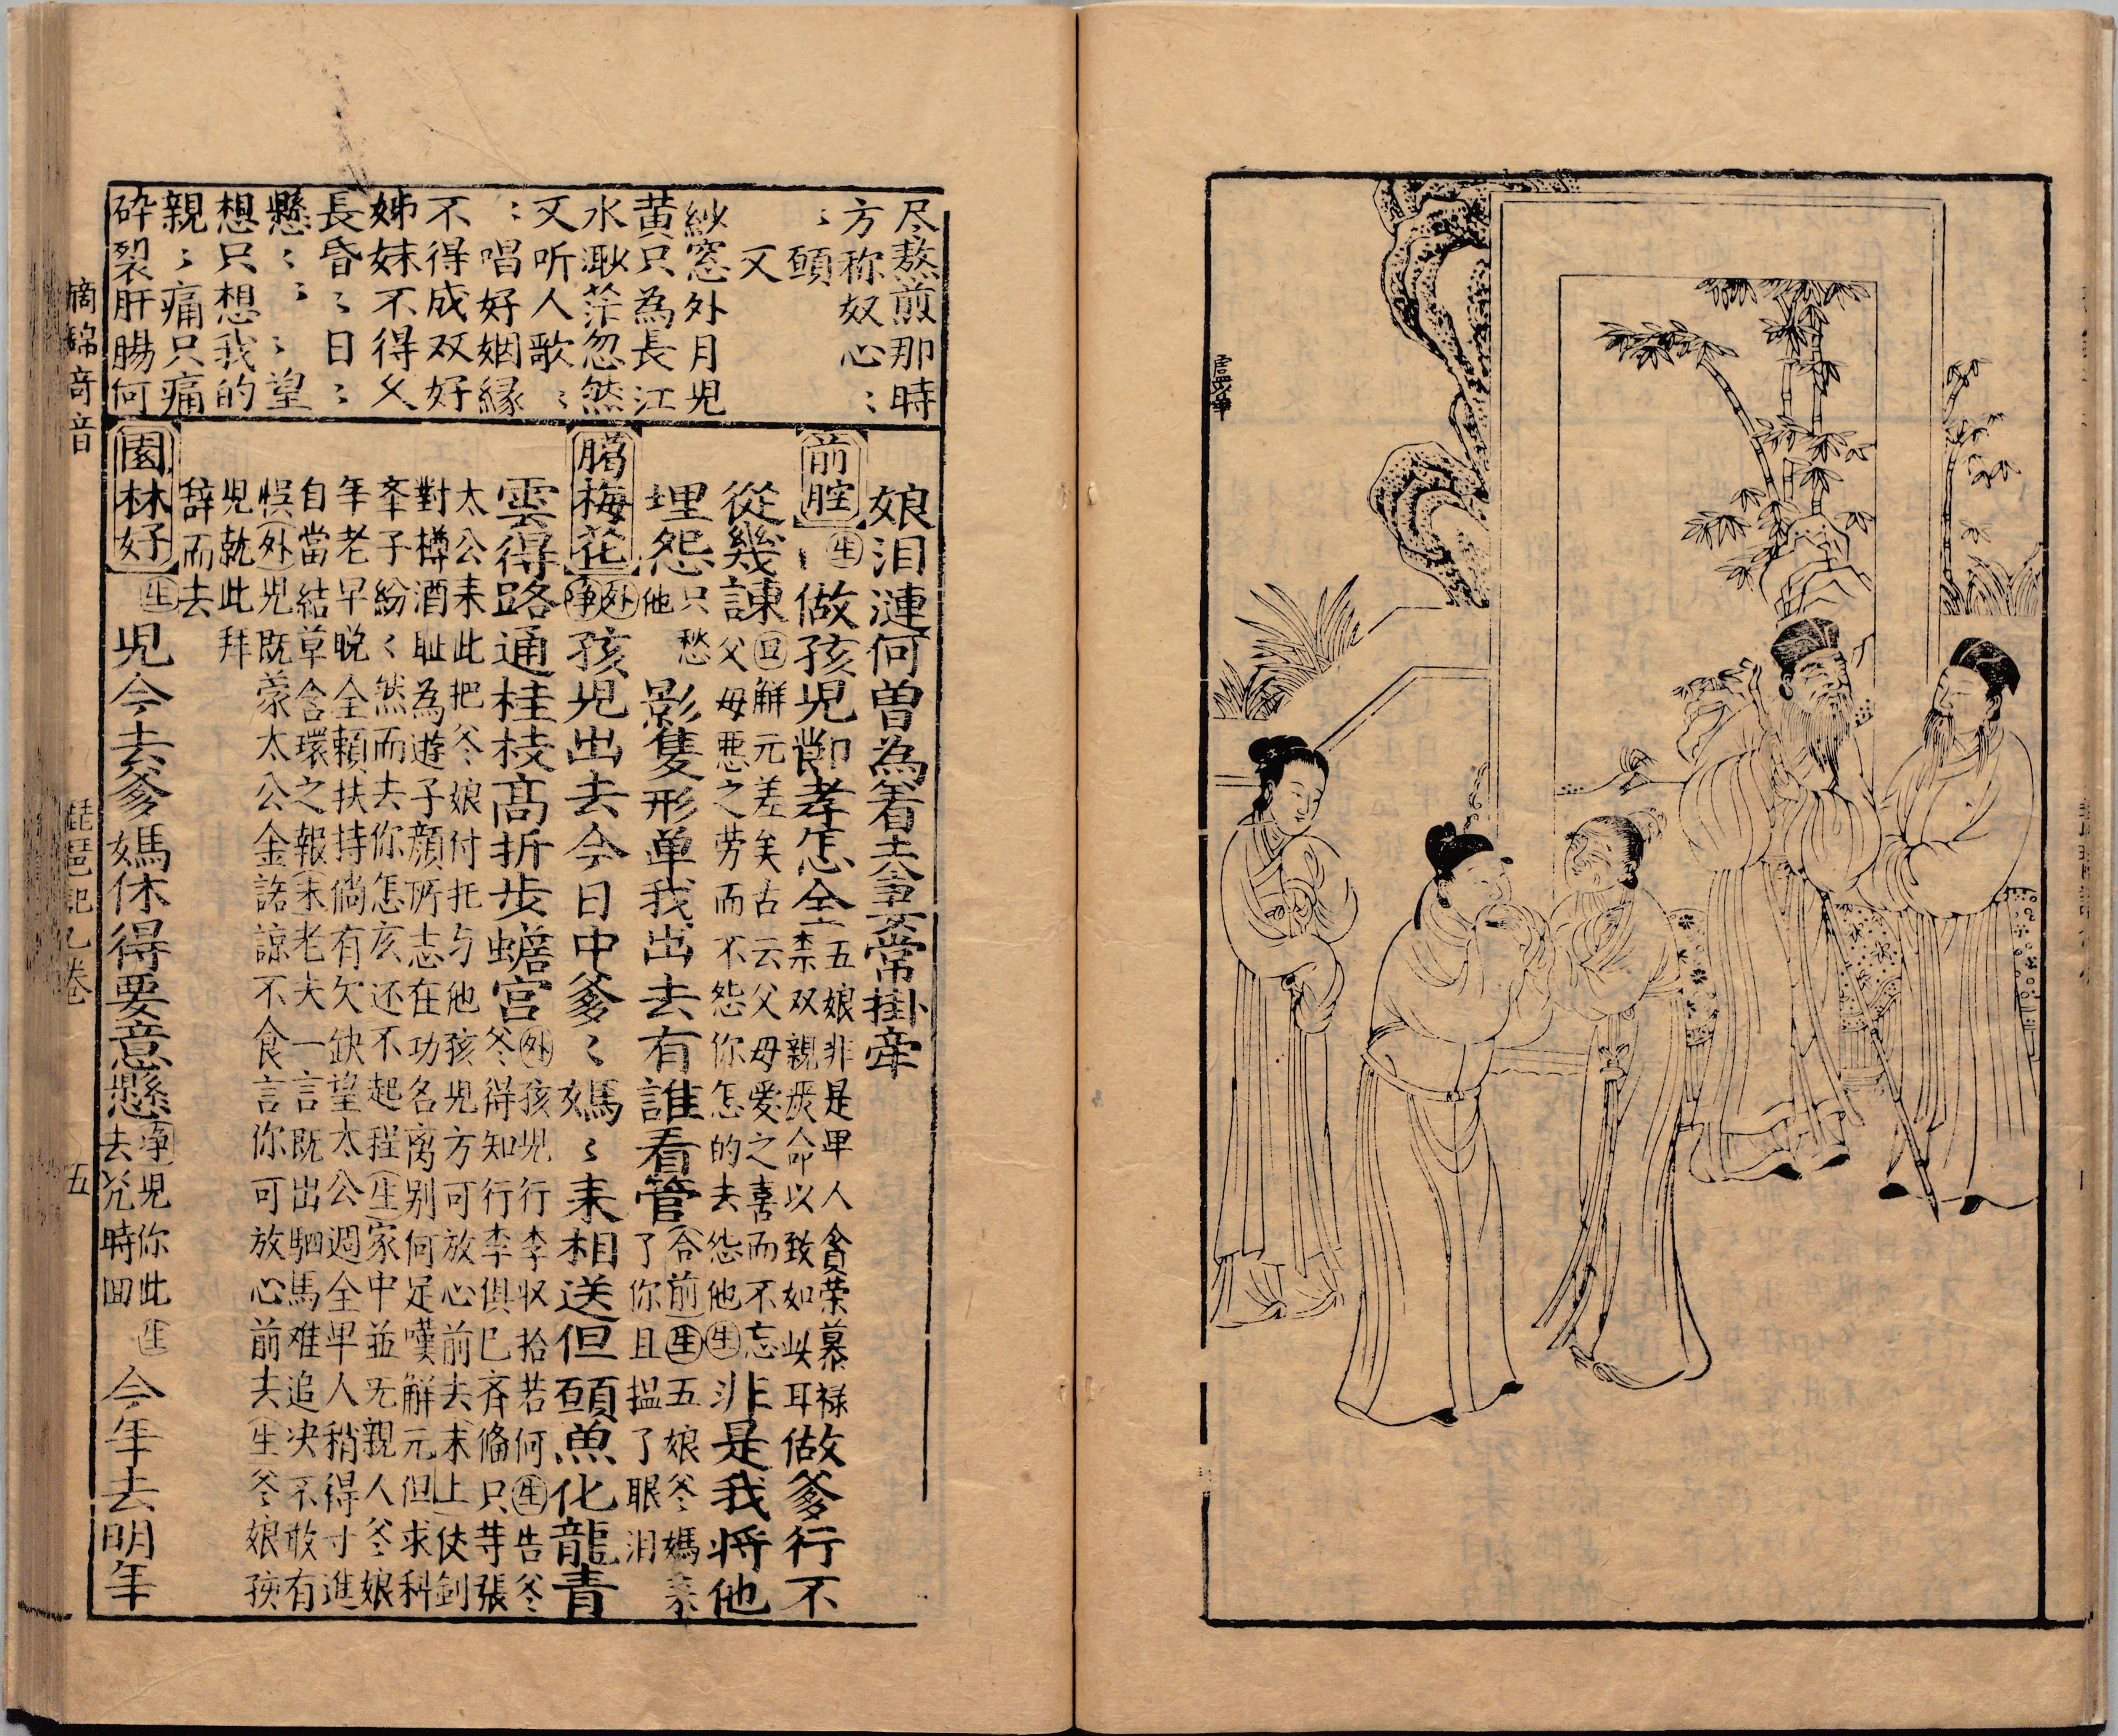 虛華
尽熬煎那時
方称奴心〻
〻頭
又
紗窓外月児
黄只為長江
水渺茫忽然
又听人歌〻
〻唱好姻縁
不得成双好
姊妹不得父
長昏〻日〻
懸〻〻〻望
想只想我的
親〻痛只痛
碎裂肝腸何
娘泪漣何曽為着夫妻常掛牽
前腔
生
做孩児節孝怎全
五娘非是畢人貪荣慕禄
禀双親嚴命以致如此耳
做爹行不
從幾諫
回解元差矣古云父母愛之喜而不忘
父母惡之劳而不怨你怎的去怨他
生
非是我将他
埋怨
只愁
他
影隻形单我出去有誰看管
合前
生
五娘爹媽来
了你且搵了眼泪
臈梅花
外
净
孩児出去今日中爹〻媽〻来相送但願魚化龍青
雲得路通桂枝高折步蟾宮
外
孩児行李収拾若何
生
告爹
爹得知行李俱已齐俻只等張
太公来此把爹娘付托与他孩児方可放心前去
末上
仗剑
對樽酒耻為遊子顔所志在功名离别何足嘆解元但求科
奉子紛〻然而去你怎亥还不起程
生
家中並无親人爹娘
年老早晚全頼扶持倘有欠缺望太公週全畢人稍得寸進
自當結草含環之報
末
老夫一言既出駟馬难追决不敢有
悞
外
児既蒙太公金諾諒不食言你可放心前去
生
爹娘孩
児就此拜
辞而去
園林好
生
児今去爹媽休得要意懸
净
児你此
去兊時回
生
今年去明年
摘錦奇音
琵琶記乙卷
五